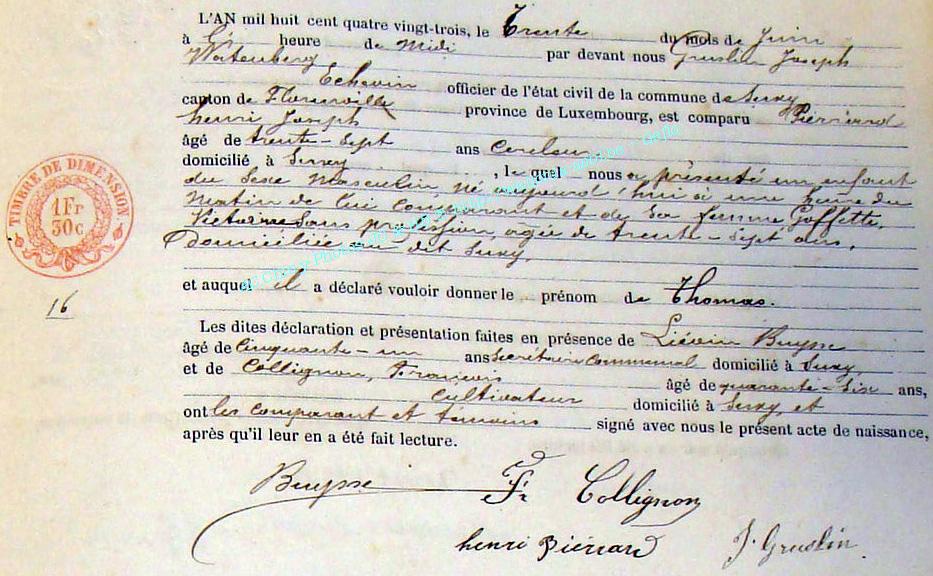 L'AN mil huit cent quatre vingt-trois, le Trente du mois de Juin
à heure de Midi par devant nous Gruslin Joseph
Echevin officier de l'état civil de la commune de Suxy
canton de Florenville province de Luxembourg, est comparu Pierrard
henri Joseph
âgé de trente-sept ans
domicilié à Suxy, le quel nous a présenté un enfant
du sexe masculin né aujourd'hui à une heure du
matin de lui comparant et de sa femme Goffette,
Victoire sans profession, agée de trente-sept ans,
Domiciliée dit Suxy,
et auquel il a déclaré vouloir donner le prénom de Thomas.
Les dites déclaration et présentation faites en présence de Liévin Buysse
âgé de cinquante-un ans secrétaire communal domicilié à Suxy,
et de Collignon, François âgé de quarante-six ans,
cultivateur domicilié à Suxy, et
ont les comparant et témoins signé avec nous le présent acte de naissance,
après qu'il leur en a été fait lecture.
TIMBRE DE DIMENSION
1 Fr
30 c
16
Buysse Fr Collignon
henri Piérrard J. Gruslin